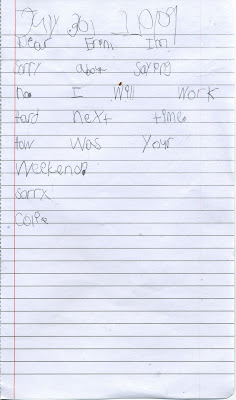 July 30, 2009
Dear Erin Im
sorry about saying
no I will work
Hard next time.
How was your
Weekend?
sorry